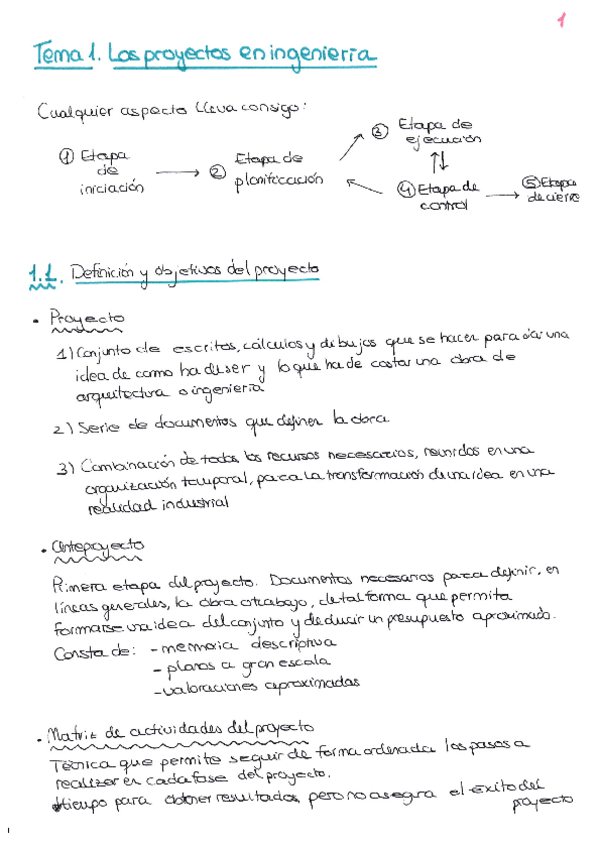 1
Tema 1. Los proyectos en ingeniería
Cualquier aspecto lleva consigo:
① Etapa de iniciación → ② Etapa de planificación
③ Etapa de ejecución
④ Etapa de control → ⑤ Etapa de cierre
1.1. Definición y objetivos del proyecto
• Proyecto
1) Conjunto de escritos, cálculos y dibujos que se hacen para dar una
idea de como ha de ser y lo que ha de costar una obra de
arquitectura o ingeniería
2) Serie de documentos que definen la obra
3) Combinación de todos los recursos necesarios, reunidos en una
organización temporal, para la transformación de una idea en una
realidad industrial
• Anteproyecto
Primera etapa del proyecto. Documentos necesarios para definir, en
líneas generales, la obra o trabajo, de tal forma que permita
formarse una idea del conjunto y deducir un presupuesto aproximado.
Consta de: - memoria descriptiva
- planos a gran escala
- valoraciones aproximadas
• Matriz de actividades del proyecto
Técnica que permite seguir de forma ordenada los pasos a
realizar en cada fase del proyecto.
tiempo para obtener resultados, pero no asegura el éxito del
proyecto